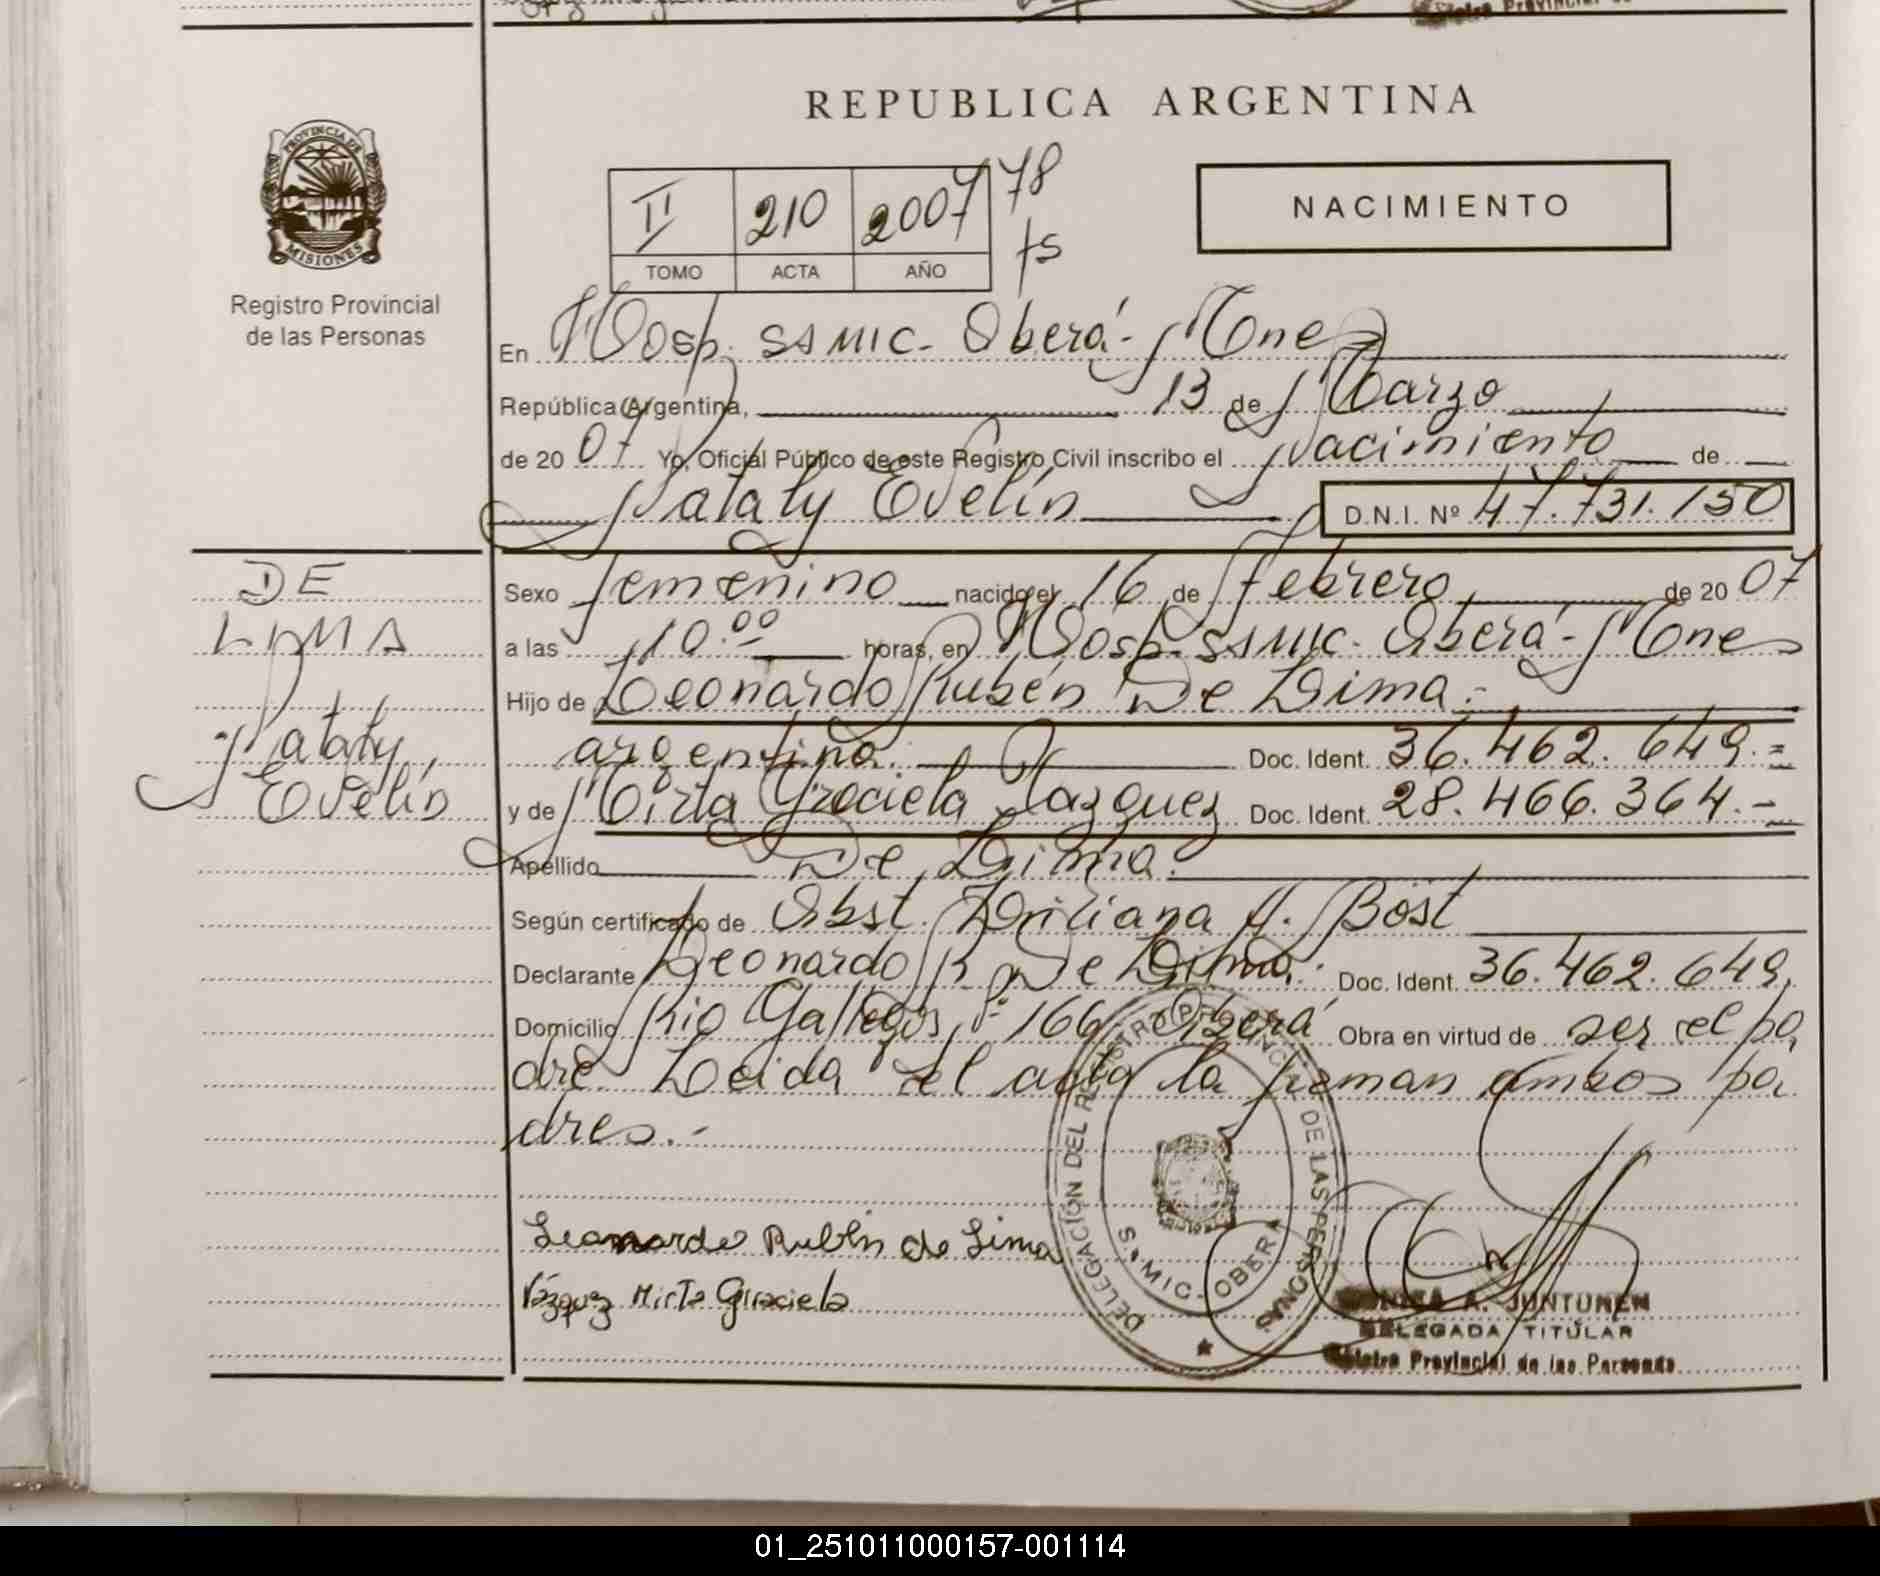 REPUBLICA ARGENTINA
PROVINCIA DE
MISIONES
Registro Provincial
de las Personas
II 210 2007 78
TOMO ACTA AÑO fs
NACIMIENTO
En Hosp. SAMIC - Oberá - Mnes
República Argentina, 13 de Marzo
de 2007 Yo, Oficial Público de este Registro Civil inscribo el Nacimiento de
Nataly Evelín D.N.I. Nº 47.731.150
DE
LIMA
Nataly,
Evelín
Sexo femenino nacido el 16 de febrero de 2007
a las 10.00 horas, en Hosp. SAMIC - Oberá - Mnes
Hijo de Leonardo Rubén De Lima.-
argentino. Doc. Ident. 36.462.649.=
y de Mirta Graciela Vazquez Doc. Ident. 28.466.364.-
Apellido De Lima.
Según certificado de Obst. Liliana A. Böst
Declarante Leonardo R. De Lima. Doc. Ident. 36.462.649.
Domicilio Río Gallegos, 166 - Oberá Obra en virtud de ser el pa
dre. Leida el acta la firman ambos pa
dres.-
Leonardo Rubén de Lima
Vázquez Mirta Graciela
DELEGACIÓN DEL REGISTRO PROVINCIAL DE LAS PERSONAS
S. MIC. OBERA
A. JUNTUNEN
DELEGADA TITULAR
Provincial de las Personas
01_251011000157-001114